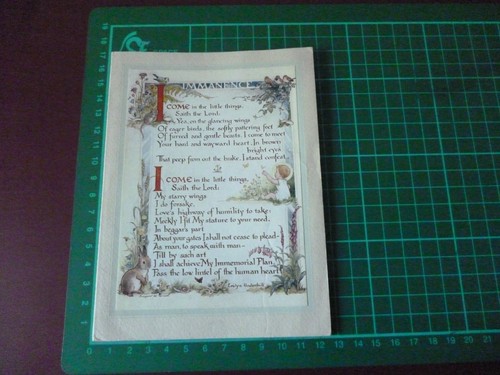 IMMANENCE
I COME in the little things,
Saith the Lord:
Yea, on the glancing wings
Of eager birds, the softly pattering feet
Of furred and gentle beasts, I come to meet
Your hard and wayward heart. In brown
bright eyes
That peep from out the brake, I stand confest.
I COME in the little things,
Saith the Lord:
My starry wings
I do forsake,
Love's highway of humility to take:
Meekly I fit My stature to your need.
In beggar's part
About your gates I shall not cease to plead-
As man, to speak with man-
Till by such art
I shall achieve My Immemorial Plan,
Pass the low lintel of the human heart.
Evelyn Underhill
19
18
17
16
15
14
13
12
11
10
9
8
7
6
5
4
3
2
1
0 1 2 3 4 5 6 7 8 9 10 11 12 13 14 15 16 17 18 19 20 21